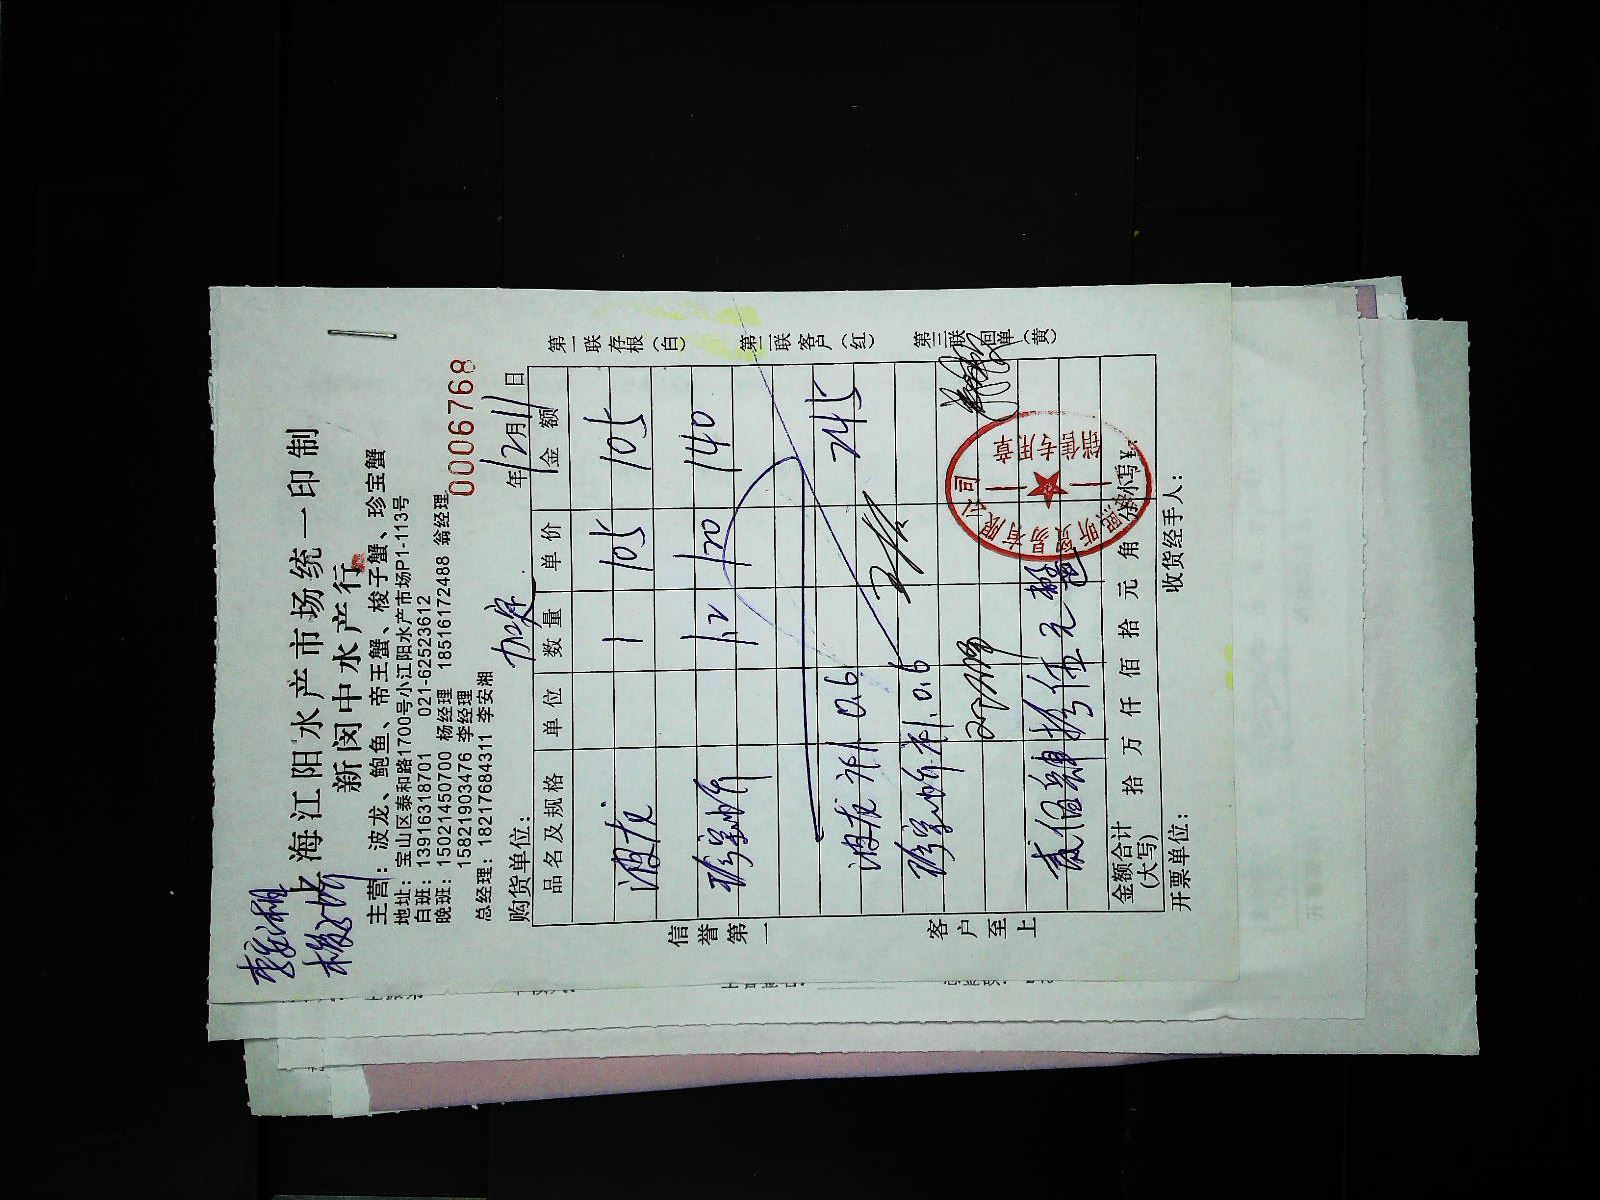 上海江阳水产市场统一印制
新闵中水产行
主营：波龙、鲍鱼、帝王蟹、梭子蟹、珍宝蟹
地址：宝山区泰和路1700号小江阳水产市场P1-113号
白班：13916318701 021-62523612
晚班：15021450700 杨经理 18516172488 翁经理
15821903476 李经理
总经理：18217684311 李安湘
0006768
购货单位： 加定 年12月11日
品名及规格 单位 数量 单价 金额
波龙 1 105 105
珍宝 1.2 120 140
245
波龙 0.6
珍宝 0.6
贰佰肆拾伍元整
金额合计(大写) 拾 万 仟 佰 拾 元 角 分 小写¥：
开票单位： 收货经手人：
信誉第一 客户至上
第一联存根（白） 第二联客户（红） 第三联回单（黄）
贸易有限公司
销售专用章